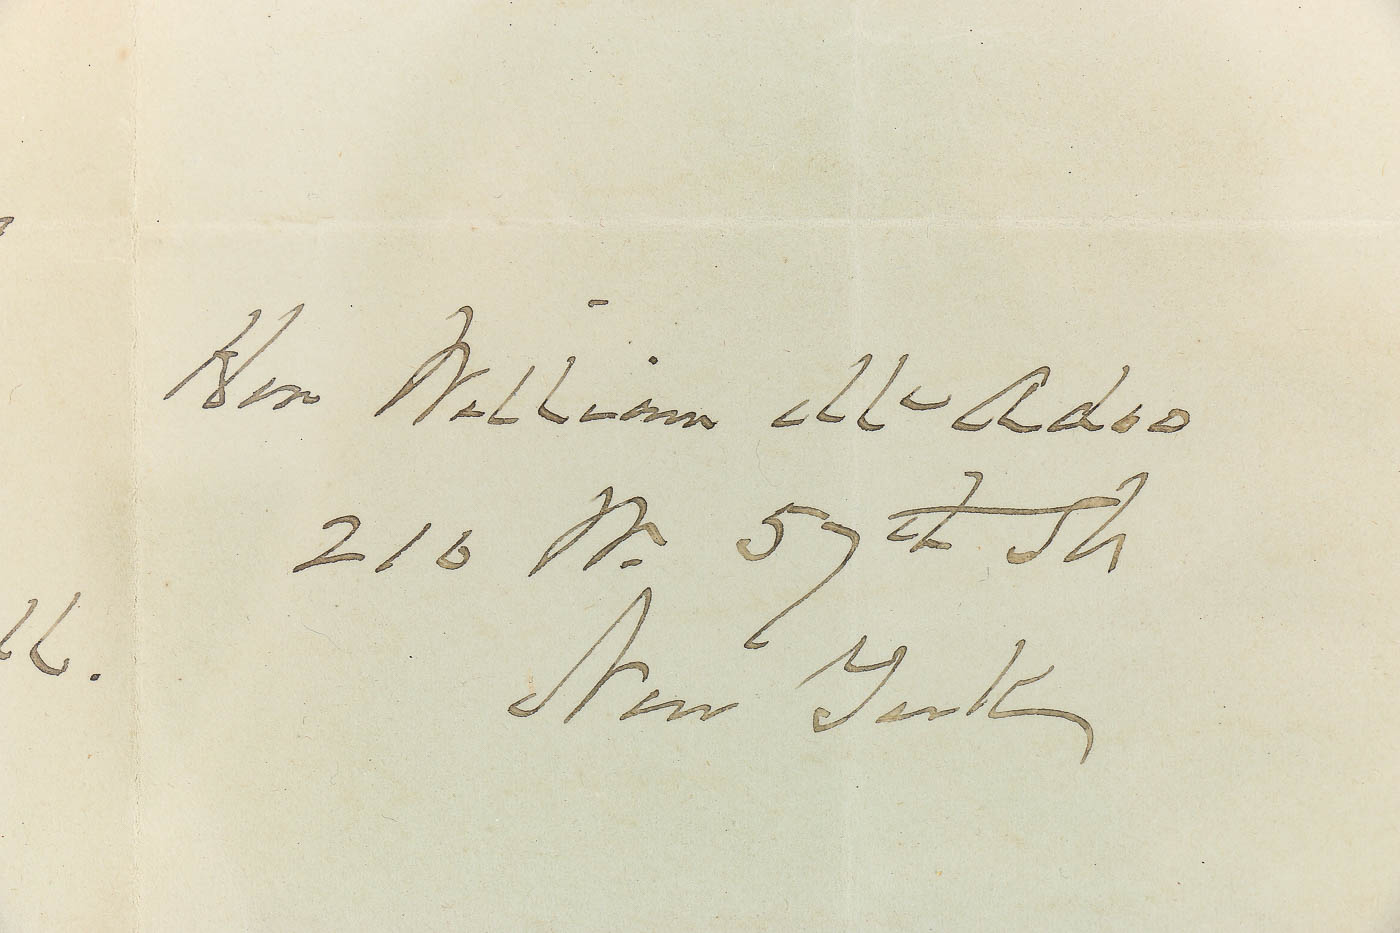 Hon William McAdoo
210 W. 57th St
New York